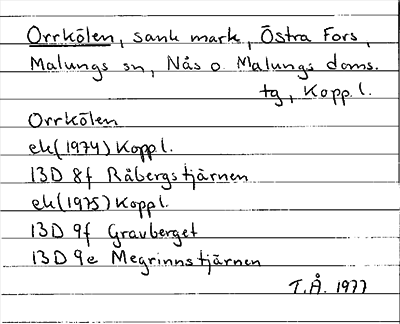 Orrkölen, sank mark, Östra Fors,
Malungs sn, Nås o Malungs doms.
tg, Koppl.
Orrkölen
ek (1974) Koppl.
13D 8f Råbergstjärnen
ek (1975) Koppl.
13D 9f Gravberget
13D 9e Megrinnstjärnen
T.Å. 1977